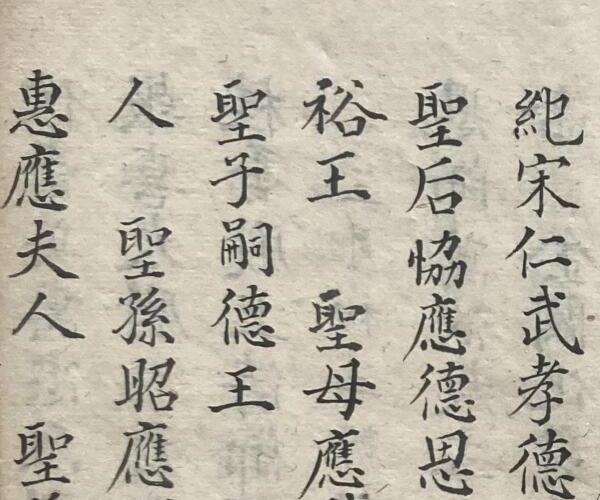 宋仁武孝德
聖后恊應德恩
裕王　聖母應
聖子嗣德王
人　聖孫昭應
惠應夫人　聖